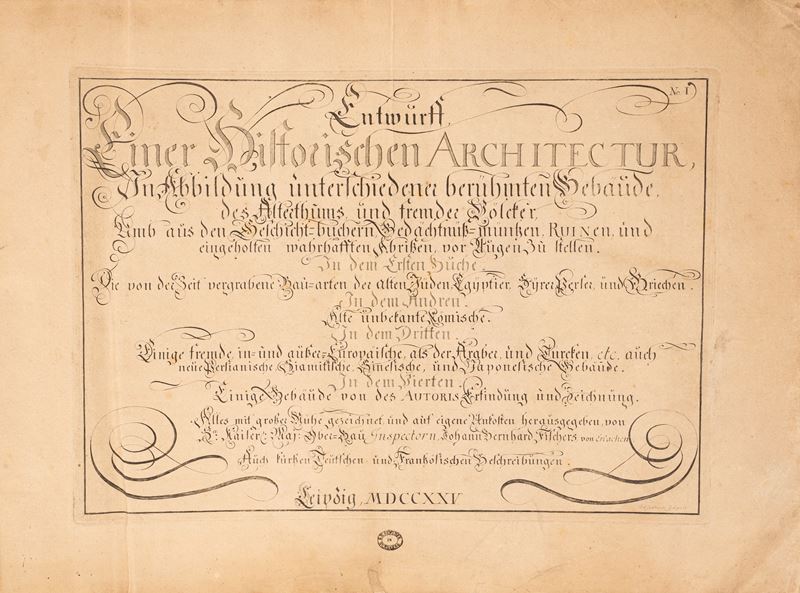 No. I
Entwurff,
Einer Historischen ARCHITECTUR,
In Abbildung unterschiedener berühmten Gebäude,
des Alterthums, und fremder Völcker,
Umb aus den Geschicht-büchern, Gedächtnüß-müntzen, RUINEN, und
eingeholten wahrhafften Abrißen, vor Augen zu stellen.
In dem Ersten Buche.
Die von der Zeit vergrabene Bau-arten der alten Juden, Egyptier, Syrer, Perser, und Griechen.
In dem Andren.
Alte unbekante Römische.
In dem Dritten.
Einige fremde, in- und außer-Europäische, als der Araber, und Turcken, etc. auch
neue Persianische, Siamitische, Sinesische, und Japonesische Gebäude.
In dem Vierten.
Einige Gebäude von des AUTORIS Erfindung und Zeichnung.
Alles mit großer Mühe gezeichnet, und auf eigene Unkosten herausgegeben, von
Kaiserl. Maj. Ober-Bau Inspectorn, Johann Bernhard, Fischers, von Erlachen
Auch kurtzen Teutschen und Frantzösischen Beschreibungen.
Leipzig, MDCCXXV